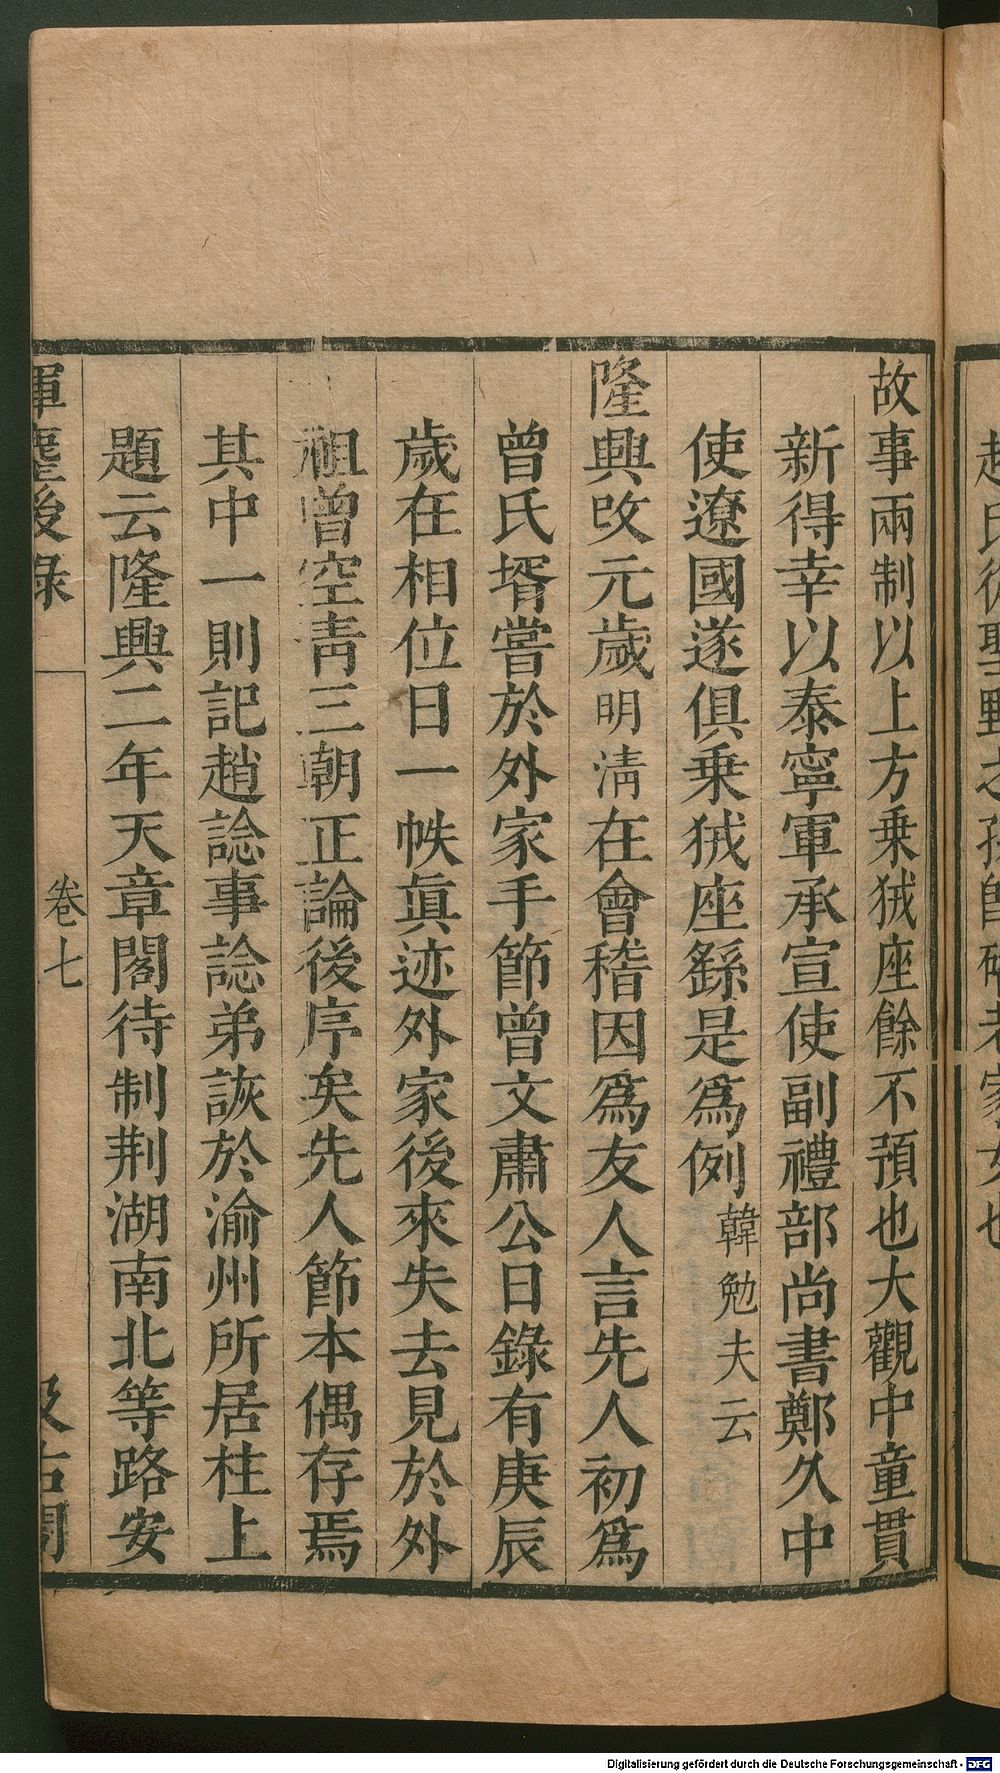 故事兩制以上方乗狨座餘不預也大觀中童貫
新得幸以泰寧軍承宣使副禮部尚書鄭久中
使遼國遂俱乗狨座繇是爲例韓勉夫云
隆興改元歲明淸在會稽因爲友人言先人初爲
曾氏壻嘗於外家手節曾文肅公日錄有庚辰
歲在相位日一帙眞迹外家後來失去見於外
祖曾空靑三朝正論後序矣先人節本偶存焉
其中一則記趙諗事諗弟詼於渝州所居柱上
題云隆興二年天章閣待制荆湖南北等路安
揮麈後錄
卷七
汲古閣
Digitalisierung gefördert durch die Deutsche Forschungsgemeinschaft - DFG